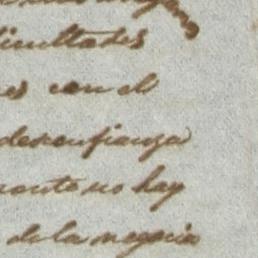 dificultades
es con el
desconfianza
mente no hay
de la negocia